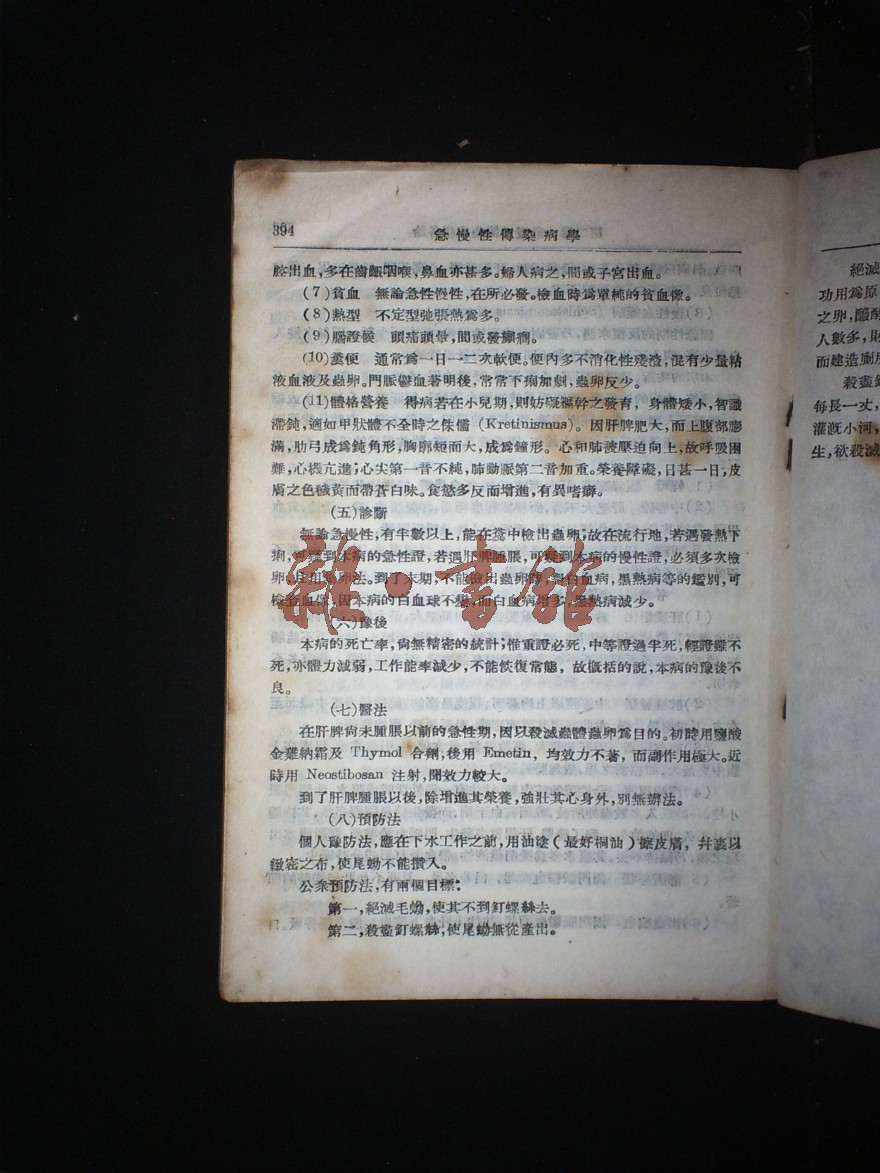 394
急慢性傳染病學
腔出血,多在齒齦咽喉,鼻血亦甚多。婦人病之,間或子宮出血。
(7)貧血 無論急性慢性,在所必發。檢血時為單純的貧血像。
(8)熱型 不定型弛張熱為多。
(9)腦證候 頭痛頭暈,間或發癲癇。
(10)糞便 通常為一日一二次軟便。便內多不消化性殘渣,混有少量粘
液血液及蟲卵。門脈鬱血著明後,常常下痢加劇,蟲卵反少。
(11)體格營養 得病若在小兒期,則妨礙軀幹之發育,身體矮小,智識
滯鈍,適如甲狀體不全時之侏儒(Kretinismus)。因肝脾肥大,而上腹部膨
滿,肋弓成為鈍角形,胸廓短而大,成為鐘形。心和肺被壓迫向上,故呼吸困
難,心機亢進;心尖第一音不純,肺動脈第二音加重。榮養障礙,日甚一日,皮
膚之色穢黃而帶蒼白味。食慾多反而增進,有異嗜癖。
(五)診斷
無論急慢性,有半數以上,能在糞中檢出蟲卵;故在流行地,若遇發熱下
痢,可疑到本病的急性證,若遇肝脾腫脹,可疑到本病的慢性證,必須多次檢
卵,且用集卵法。到了末期,不能檢出蟲卵時,對白血病,黑熱病等的鑑別,可
檢查血像,因本病的白血球不變,而白血病增多,黑熱病減少。
(六)豫後
本病的死亡率,尚無精密的統計;惟重證必死,中等證過半死,輕證雖不
死,亦體力減弱,工作能率減少,不能恢復常態,故概括的說,本病的豫後不
良。
(七)醫法
在肝脾尚未腫脹以前的急性期,因以殺滅蟲體蟲卵為目的。初時用鹽酸
金雞納霜及 Thymol 合劑,後用 Emetin,均效力不著,而副作用極大。近
時用 Neostibosan 注射,聞效力較大。
到了肝脾腫脹以後,除增進其榮養,強壯其心身外,別無辦法。
(八)預防法
個人豫防法,應在下水工作之前,用油塗(最好桐油)擦皮膚,并裹以
緻密之布,使尾蚴不能攢入。
公衆預防法,有兩個目標:
第一,絕滅毛蚴,使其不到釘螺絲去。
第二,殺盡釘螺絲,使尾蚴無從產出。
絕滅
功用為原
之卵,醱酵
人數多,
而建造廁
殺盡
每長一丈,
灌溉小河,
生,欲殺滅
雜·書館